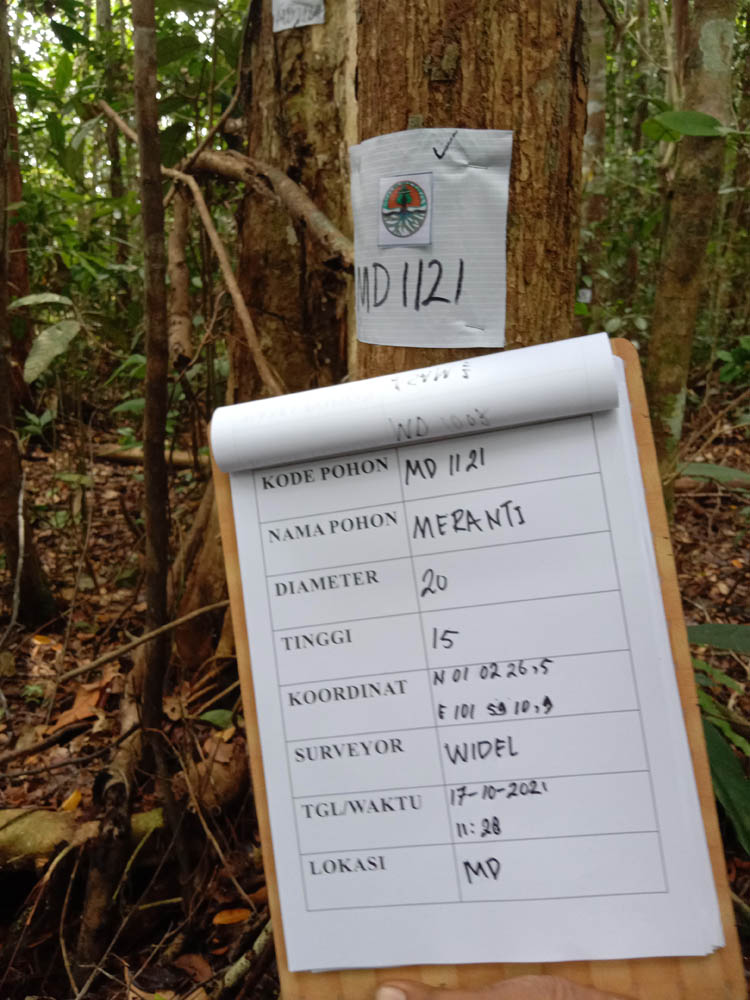 ✓
MD 1121
KODE POHON MD 1121
NAMA POHON MERANTI
DIAMETER 20
TINGGI 15
KOORDINAT N 01 02 26,5
E 101 59 10,9
SURVEYOR WIDEL
TGL/WAKTU 17-10-2021
11:28
LOKASI MD